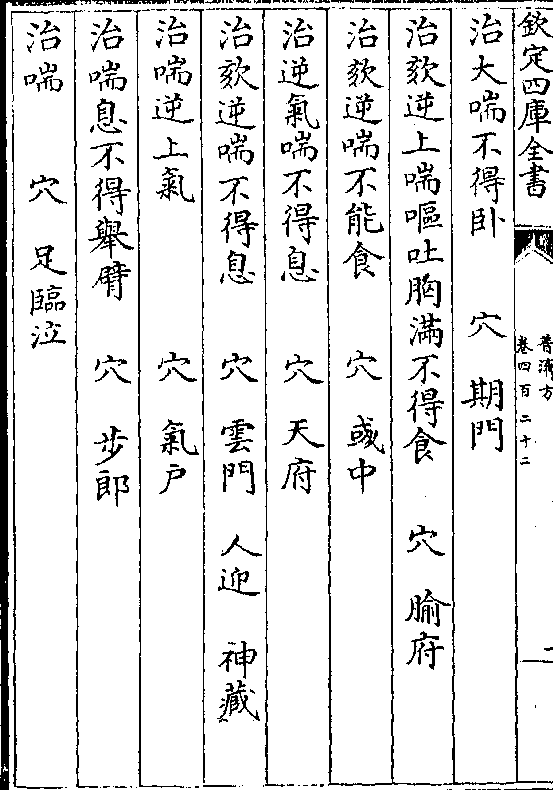 欽定四庫全書
普濟方
卷四百二十二
治大喘不得卧 穴 期門
治欬逆上喘嘔吐胸滿不得食 穴 腧府
治欬逆喘不能食 穴 彧中
治逆氣喘不得息 穴 天府
治欬逆喘不得息 穴 雲門 人迎 神藏
治喘逆上氣 穴 氣户
治喘息不得舉臂 穴 步郎
治喘 穴 足臨泣